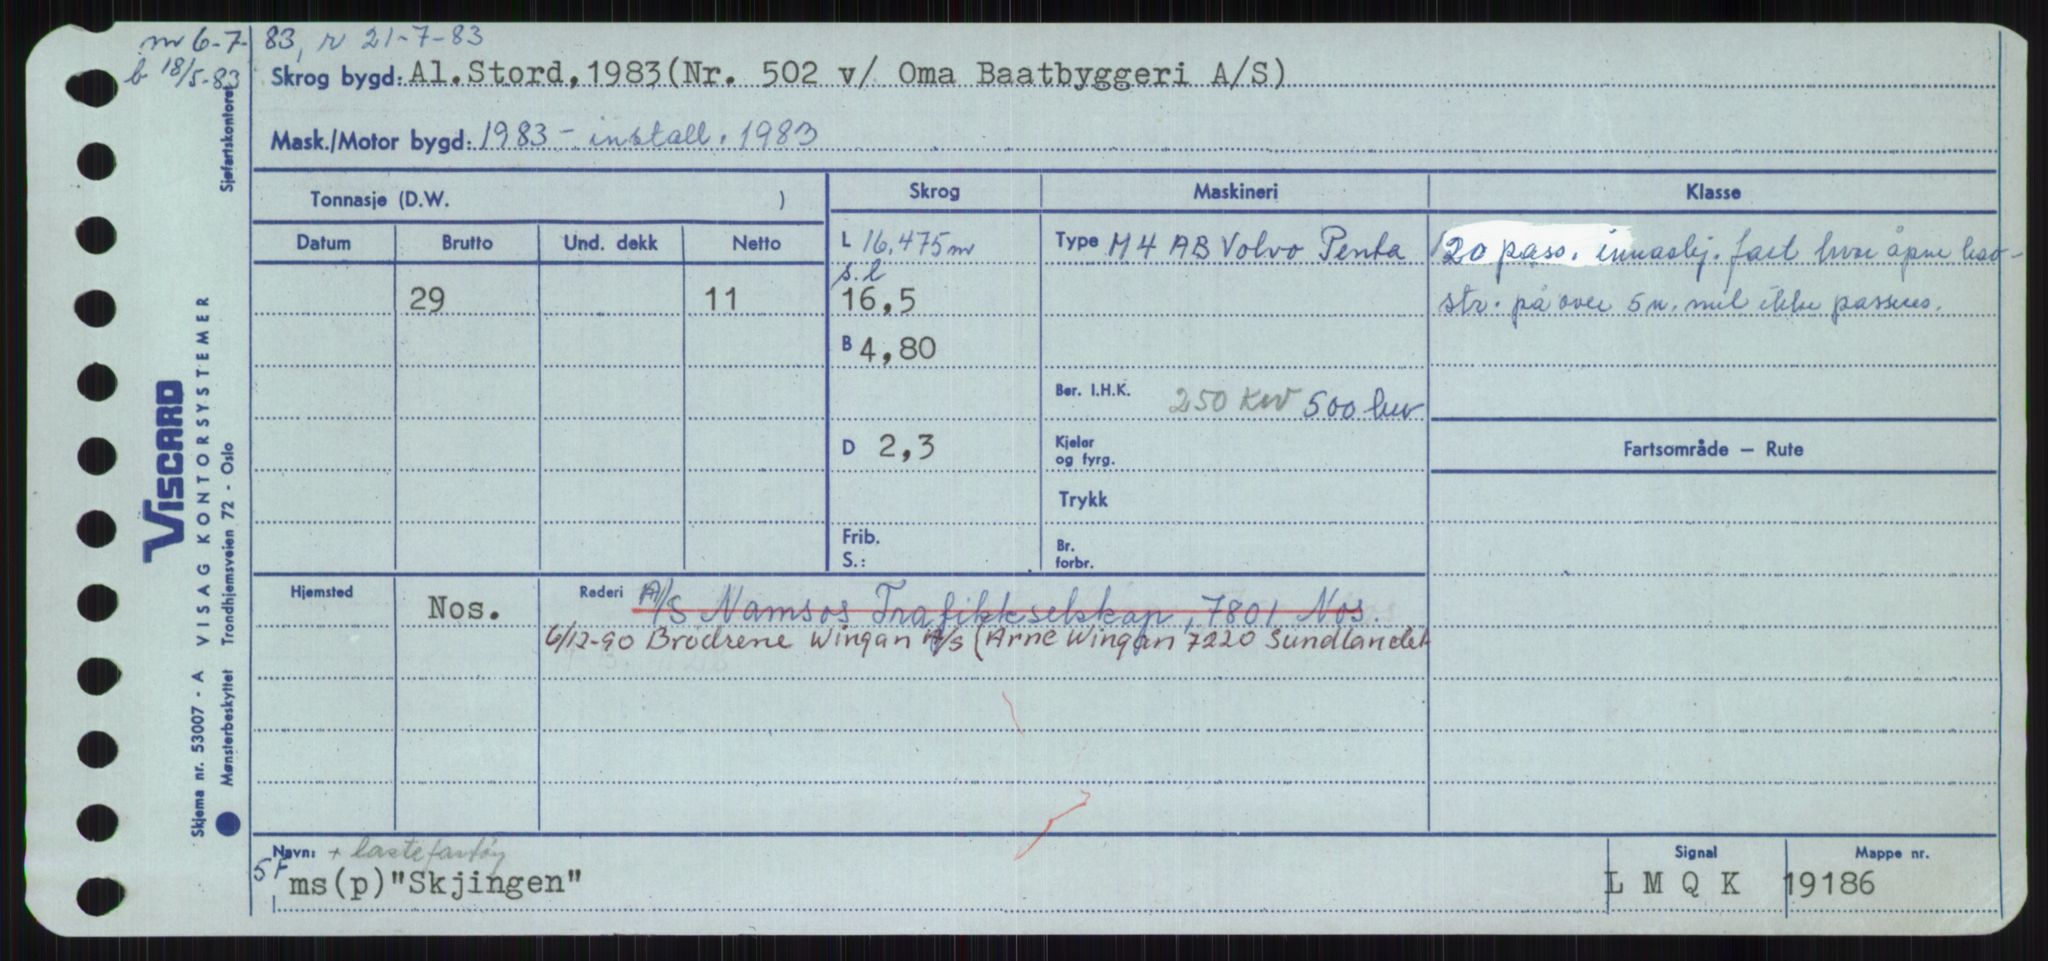 m 6-7-83, r 21-7-83
b 18/5-83
Skrog bygd: Al.Stord,1983(Nr. 502 v/ Oma Baatbyggeri A/S)
Mask./Motor bygd: 1983 - install. 1983
Tonnasje (D.W. )
Skrog
Maskineri
Klasse
Datum Brutto Und. dekk Netto
L 16,475 m
Type M 4 AB Volvo Penta
20 pass. innaskj. fart hvor åpne hav-
s.l
29 11
16,5
str. på over 5 n. mil ikke passeres.
B 4,80
Ber. I.H.K. 250 KW 500 hk
D 2,3
Kjeler
og fyrg.
Fartsområde — Rute
Trykk
Frib.
S.:
Br.
forbr.
Hjemsted Nos.
Rederi A/S Namsos Trafikkselskap, 7801 Nos.
6/12-90 Brødrene Wingan A/S (Arne Wingan 7220 Sundlandet
Navn: + lastefartøy
5F ms(p)"Skjingen"
Signal
L M Q K
Mappe nr.
19186
VISCARD
VISAG KONTORSYSTEMER
Skjema nr. 53007 - A
Mønsterbeskyttet Trondhjemsveien 72 - Oslo
Sjøfartskontoret